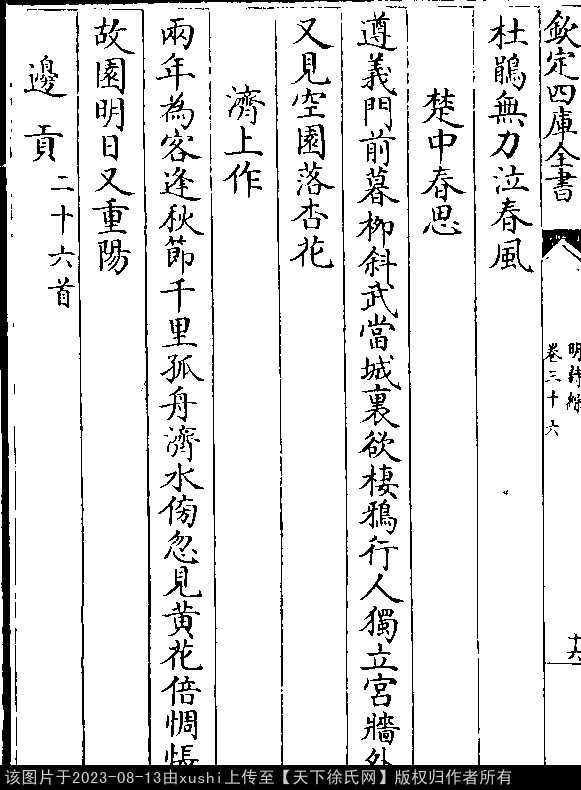 欽定四庫全書
明詩綜
卷三十六
十六
杜鵑無力泣春風
楚中春思
遵義門前暮柳斜武當城裏欲棲鴉行人獨立宮牆外
又見空園落杏花
濟上作
兩年為客逢秋節千里孤舟濟水傍忽見黃花倍惆悵
故園明日又重陽
邊貢
二十六首
该图片于2023-08-13由xushi上传至【天下徐氏网】版权归作者所有